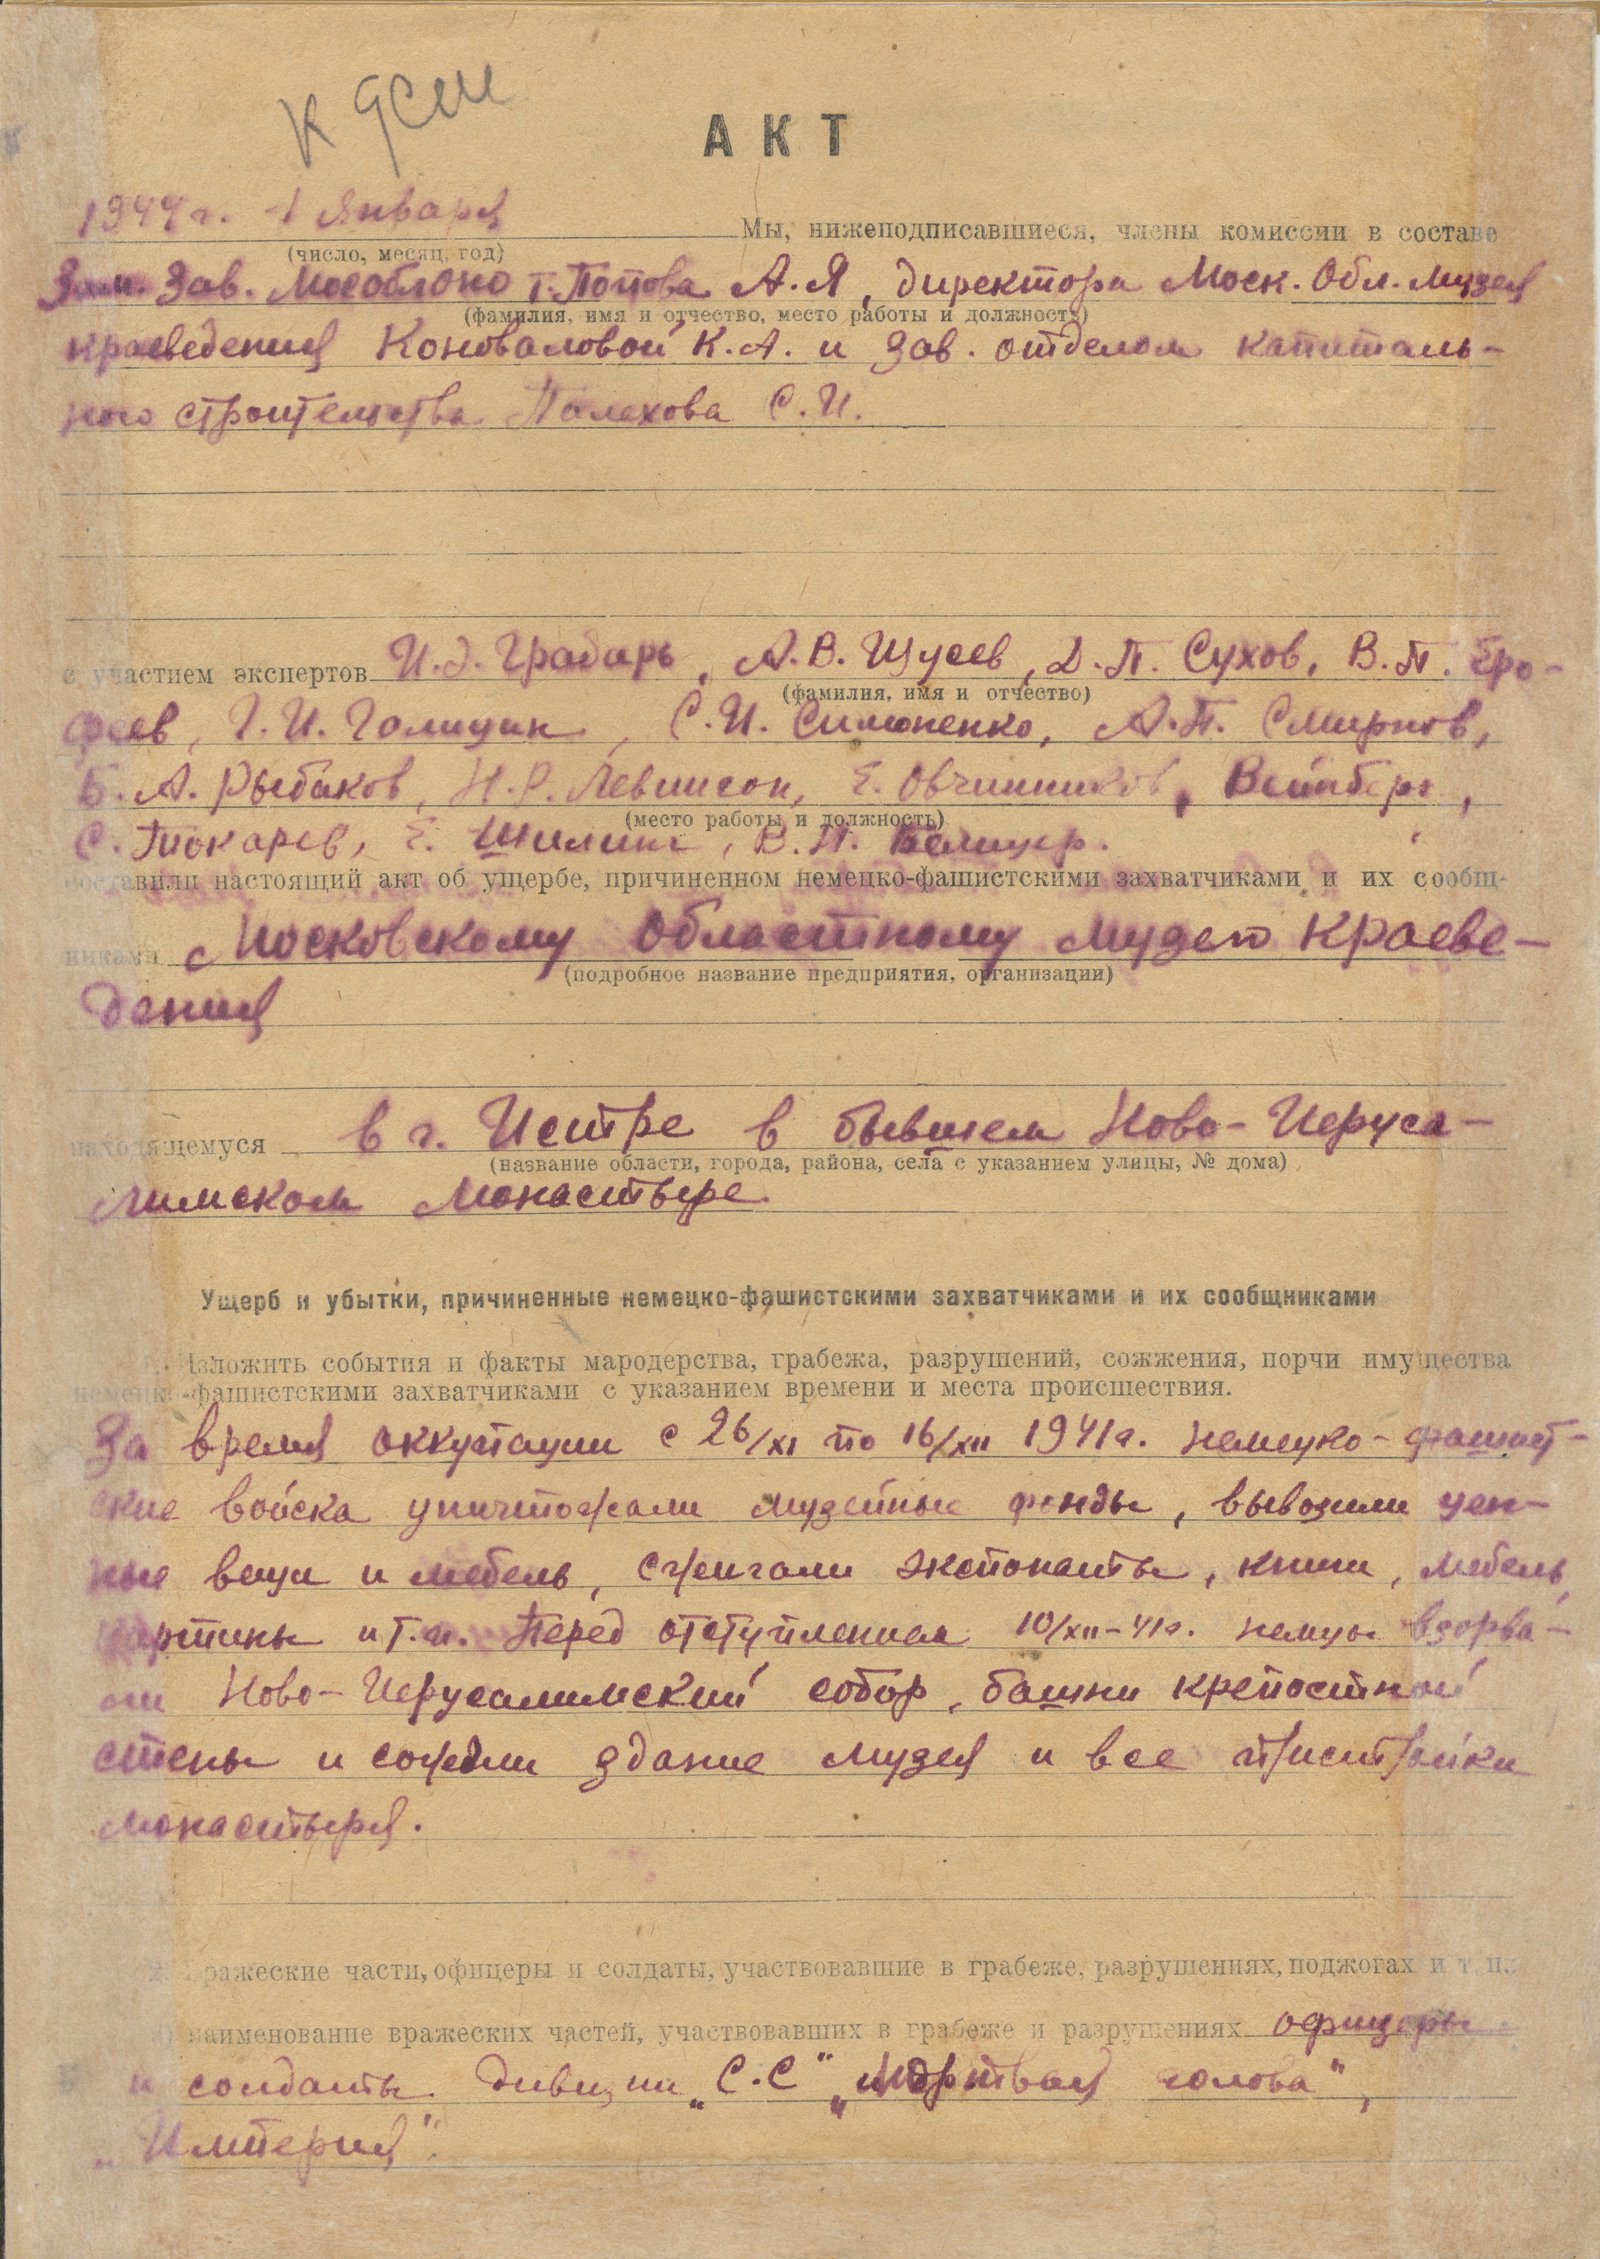 К
АКТ
1944 г. 1 Января Мы, нижеподписавшиеся, члены комиссии в составе
(число, месяц, год)
Зам. Зав. Мособлоно т. Попова А.Я, директора Моск. Обл. Музея
(фамилия, имя и отчество, место работы и должность)
краеведения Коноваловой К.А. и Зав. отделом капиталь-
ного строительства Палехова С.И.
с участием экспертов И.Э. Грабарь, А.В. Щусев, Д.П. Сухов, В.П. Еро-
(фамилия, имя и отчество)
феев, Г.И. Голицын, С.И. Симоненко, А.П. Смирнов,
Б.А. Рыбаков, Н.Р. Левинсон, Е. Овчинников, Вейнберг,
(место работы и должность)
С. Токарев, Е. Шилинг, В.Н. Белицер.
составили настоящий акт об ущербе, причиненном немецко-фашистскими захватчиками и их сообщ-
никами Московскому Областному Музею Краеве-
(подробное название предприятия, организации)
дения
находящемуся в г. Истре в бывшем Ново-Иеруса-
(название области, города, района, села с указанием улицы, № дома)
лимском Монастыре.
Ущерб и убытки, причиненные немецко-фашистскими захватчиками и их сообщниками
1. Изложить события и факты мародерства, грабежа, разрушений, сожжения, порчи имущества
немецко-фашистскими захватчиками с указанием времени и места происшествия.
За время оккупации с 26/XI по 16/XII 1941 г. немецко-фашист-
ские войска уничтожали музейные фонды, вывозили цен-
ные вещи и мебель, сжигали экспонаты, книги, мебель,
картины и т.п. Перед отступлением 10/XII-41 г. немцы взорва-
ли Ново-Иерусалимский собор, башни крепостной
стены и сожгли здание музея и все пристройки
монастыря.
2. Вражеские части, офицеры и солдаты, участвовавшие в грабеже, разрушениях, поджогах и т. п.:
а) наименование вражеских частей, участвовавших в грабеже и разрушениях офицеры
и солдаты дивизии „С.С" „Мертвая голова",
„Империя".